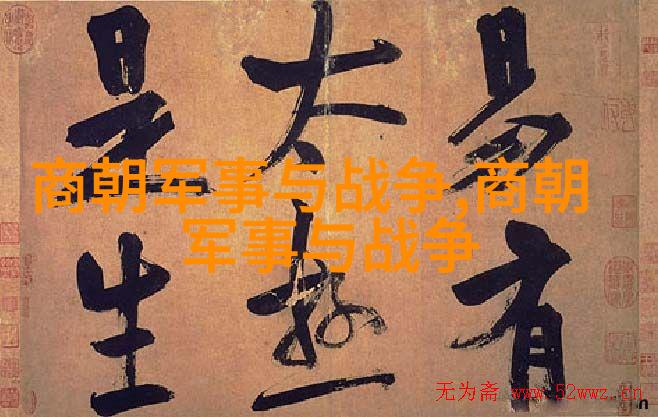 易有
太極
是生
商朝军事与战争,商朝
军事与战争
无为斋 www.52wwz.cn